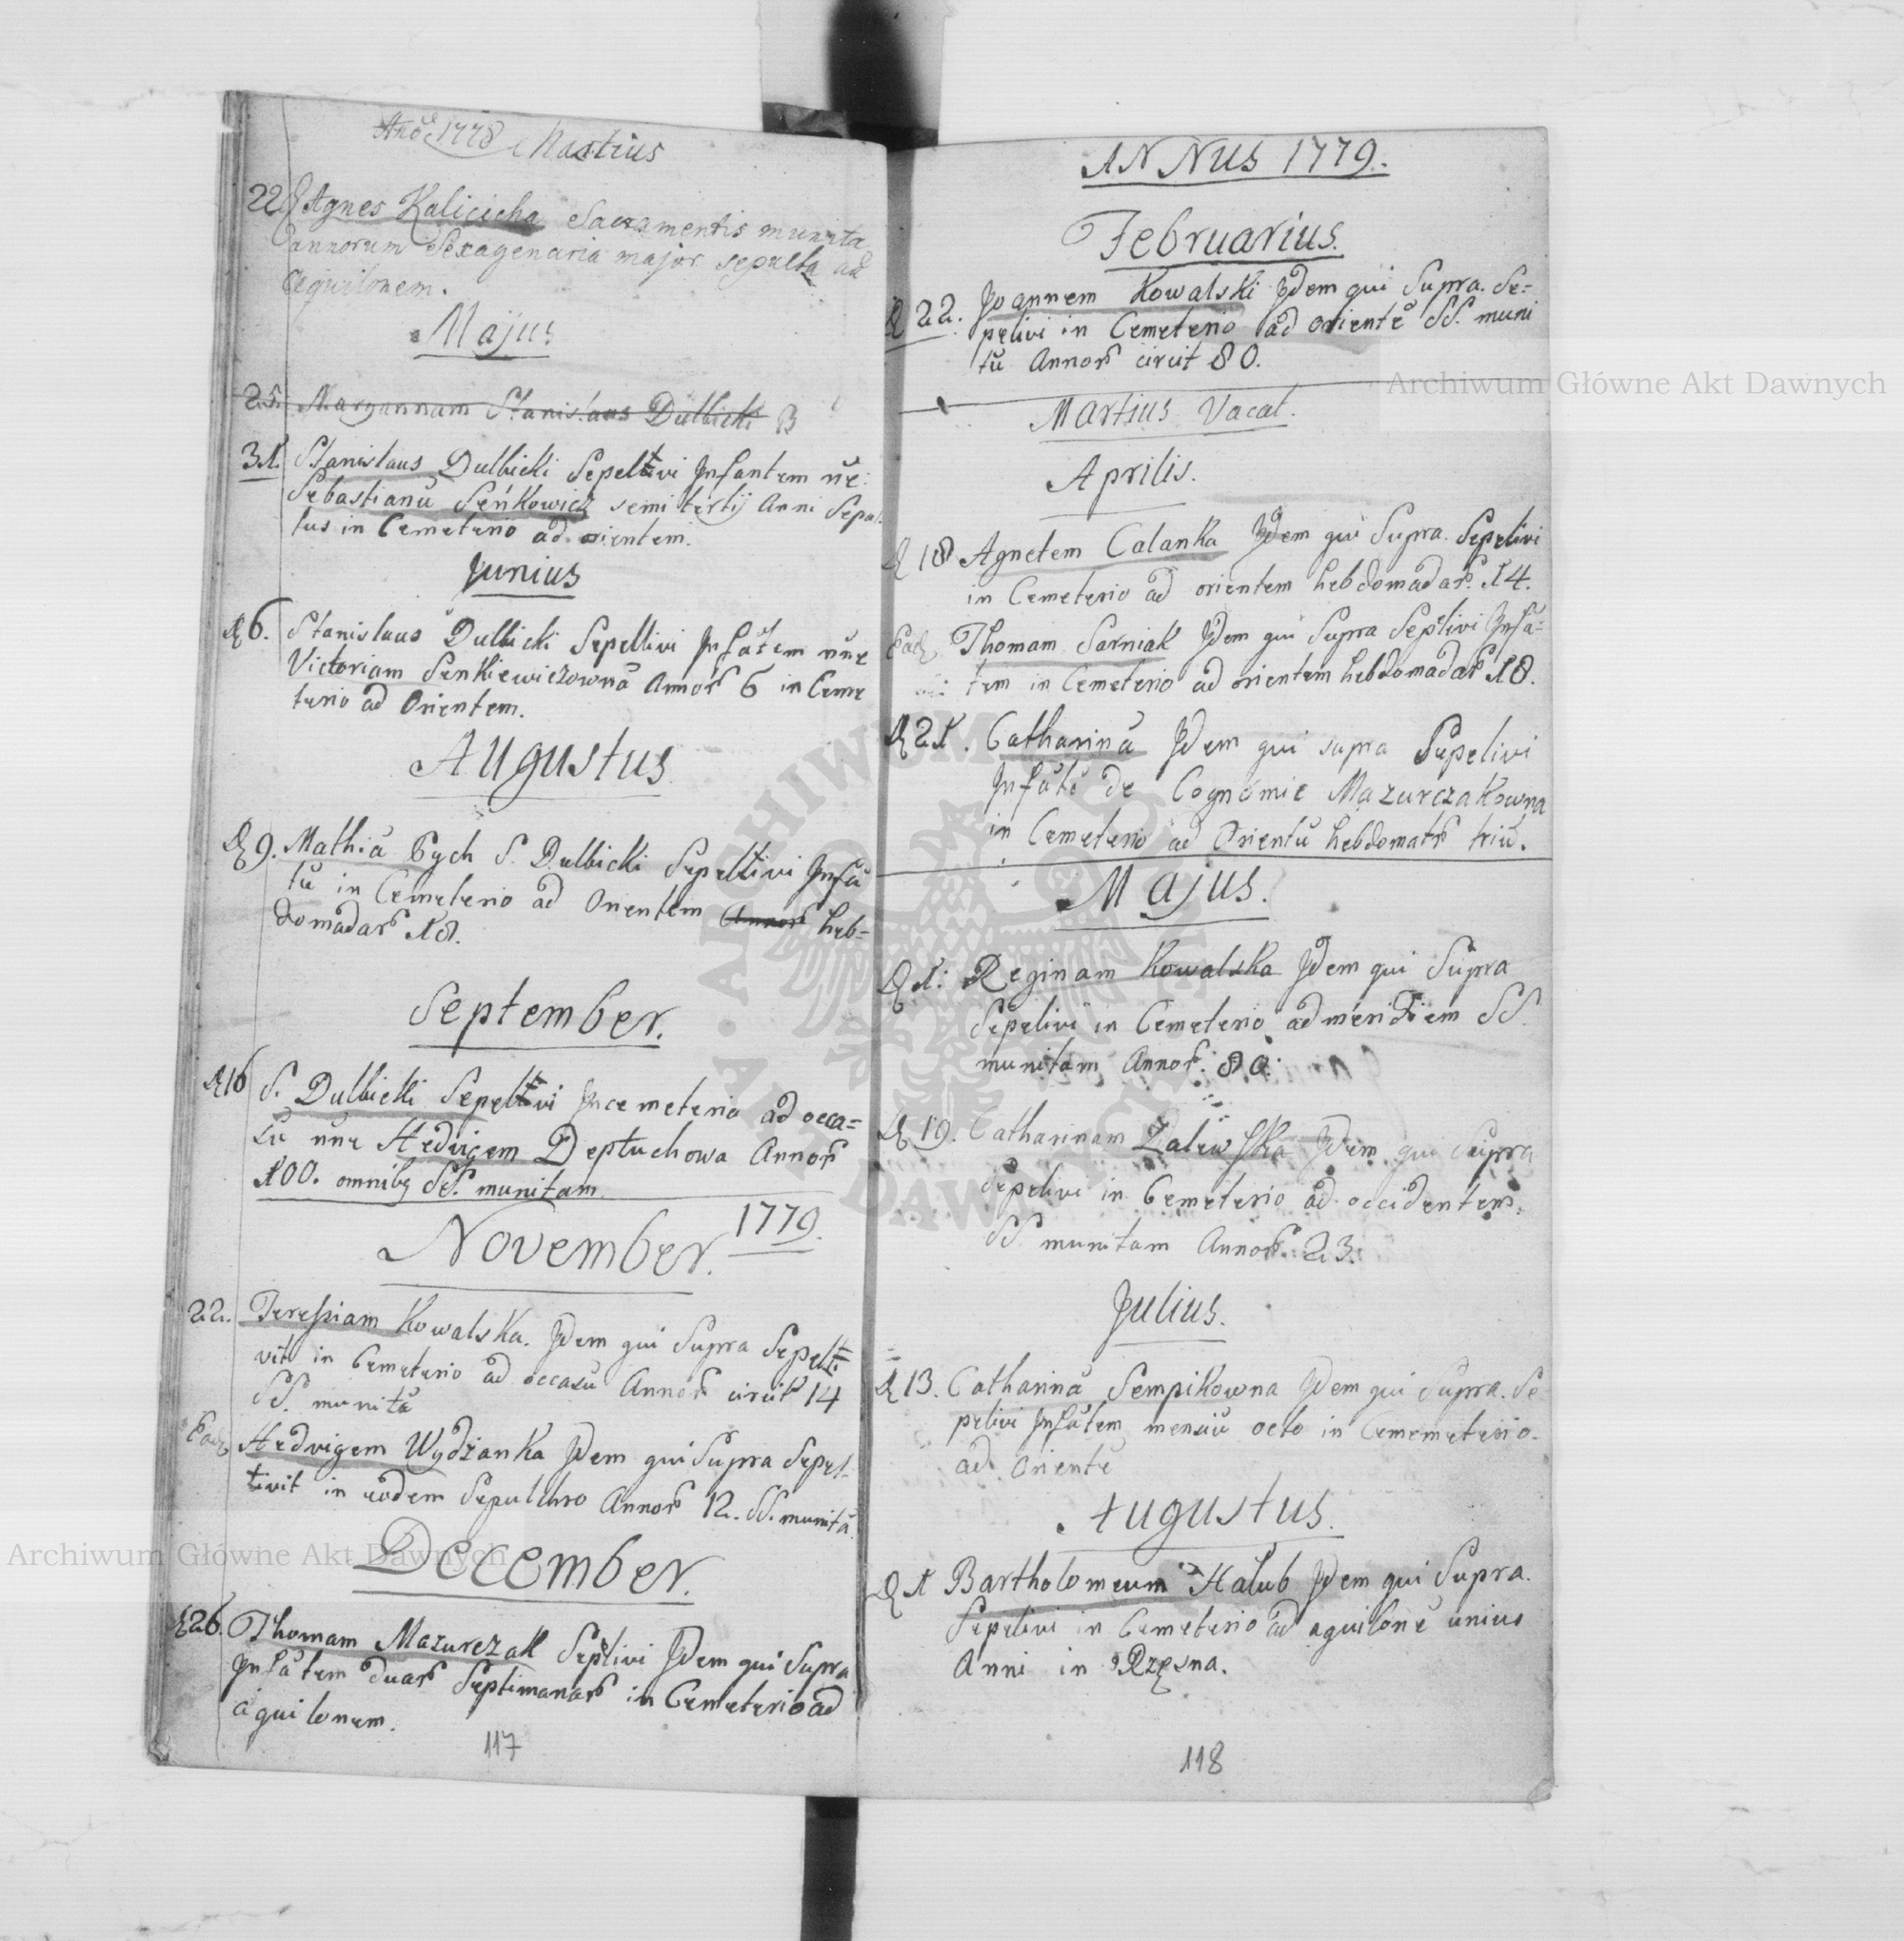 Año 1778 Martius
22 Agnes Kalicicha Sacramentis munita
annorum Sexagenaria major sepulta ad
aquilonem.
Majus
25. Maryannam Stanislaus Dulbicki B
31. Stanislaus Dulbicki Sepelivi Infantem ne:
Sebastianū Seńkowicz semi tertij Anni Sepul:
tus in Cemeterio ad orientem.
Junius
D 6. Stanislaus Dulbicki Sepellivi Infātem nne
Victoriam Senkiewiczownā Annor 6 in Ceme
terio ad Orientem.
Augustus
D 9. Mathiā Pych S. Dulbicki Sepellivi Infā
tē in Cemeterio ad Orientem Annor heb=
domadar 18.
September.
D 16 S. Dulbicki Sepelivi In cemeterio ad occa=
sū nne Hedvigem Deptuchowa Annor
100. omnibq SS. munitam
1779.
November.
22. Teressiam Kowalska. Idem qui Supra Sepeli=
vit in Cemeterio ad occasū Annor circit 14
SS. munitā
Eadē Hedvigem Wydzanka Idem qui Supra Sepel-
ivit in eodem Sepulchro Annor 12. SS. munitā
December.
D 26. Thomam Mazurczak Seplivi Idem qui Supra
Infātem duar Septimanar in Cemeterio ad
aquilonem.
117
ANNUS 1779.
Februarius.
D 22. Joannem Kowalski Idem qui Supra. Se=
pelivi in Cemeterio ad orientē SS. muni
tū Annor circit 80.
Martius Vacat.
Aprilis.
D 18 Agnetem Calanka Idem qui Supra. Sepelivi
in Cemeterio ad orientem hebdomadar 14.
Eadē Thomam Sarniak Idem qui Supra Seplivi Infā=
tem in Cemeterio ad orientem hebdomadar 18.
D 21. Catharinā Idem qui supra Sepelivi
Infātē de Cognōmie Mazurczakowna
in Cemeterio ad Orientē hebdomatr triū.
Majus.
D 1: Reginam Kowalska Idem qui Supra
Sepelivi in Cemeterio ad meridiem SS.
munitam Annor: 80.
D 19. Catharinam Zalewska Idem qui Supra
Sepelivi in Cemeterio ad occidentem.
SS munitam Annor. 23.
Julius.
D 13. Catharinā Sempikowna Idem qui Supra. Se
pelivi Infātem mensiū octo in Cememeterio.
ad Orientē
Augustus.
D 1 Bartholomeum Halub Idem qui Supra.
Sepelivi in Cemeterio ad aquilonē unius
Anni in Rzęsna.
118
Archiwum Główne Akt Dawnych
Archiwum Główne Akt Dawnych
ARCHIWUM GŁÓWNE AKT DAWNYCH